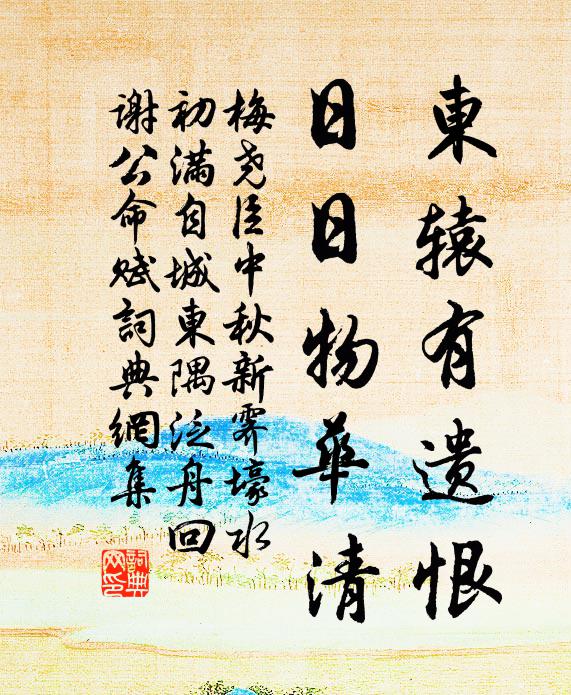 東辕有遗恨
日日物華清
梅尧臣中秋新霽壕水
初滿自城東隅泛舟回
谢公命赋詞典網集
詞典
网印